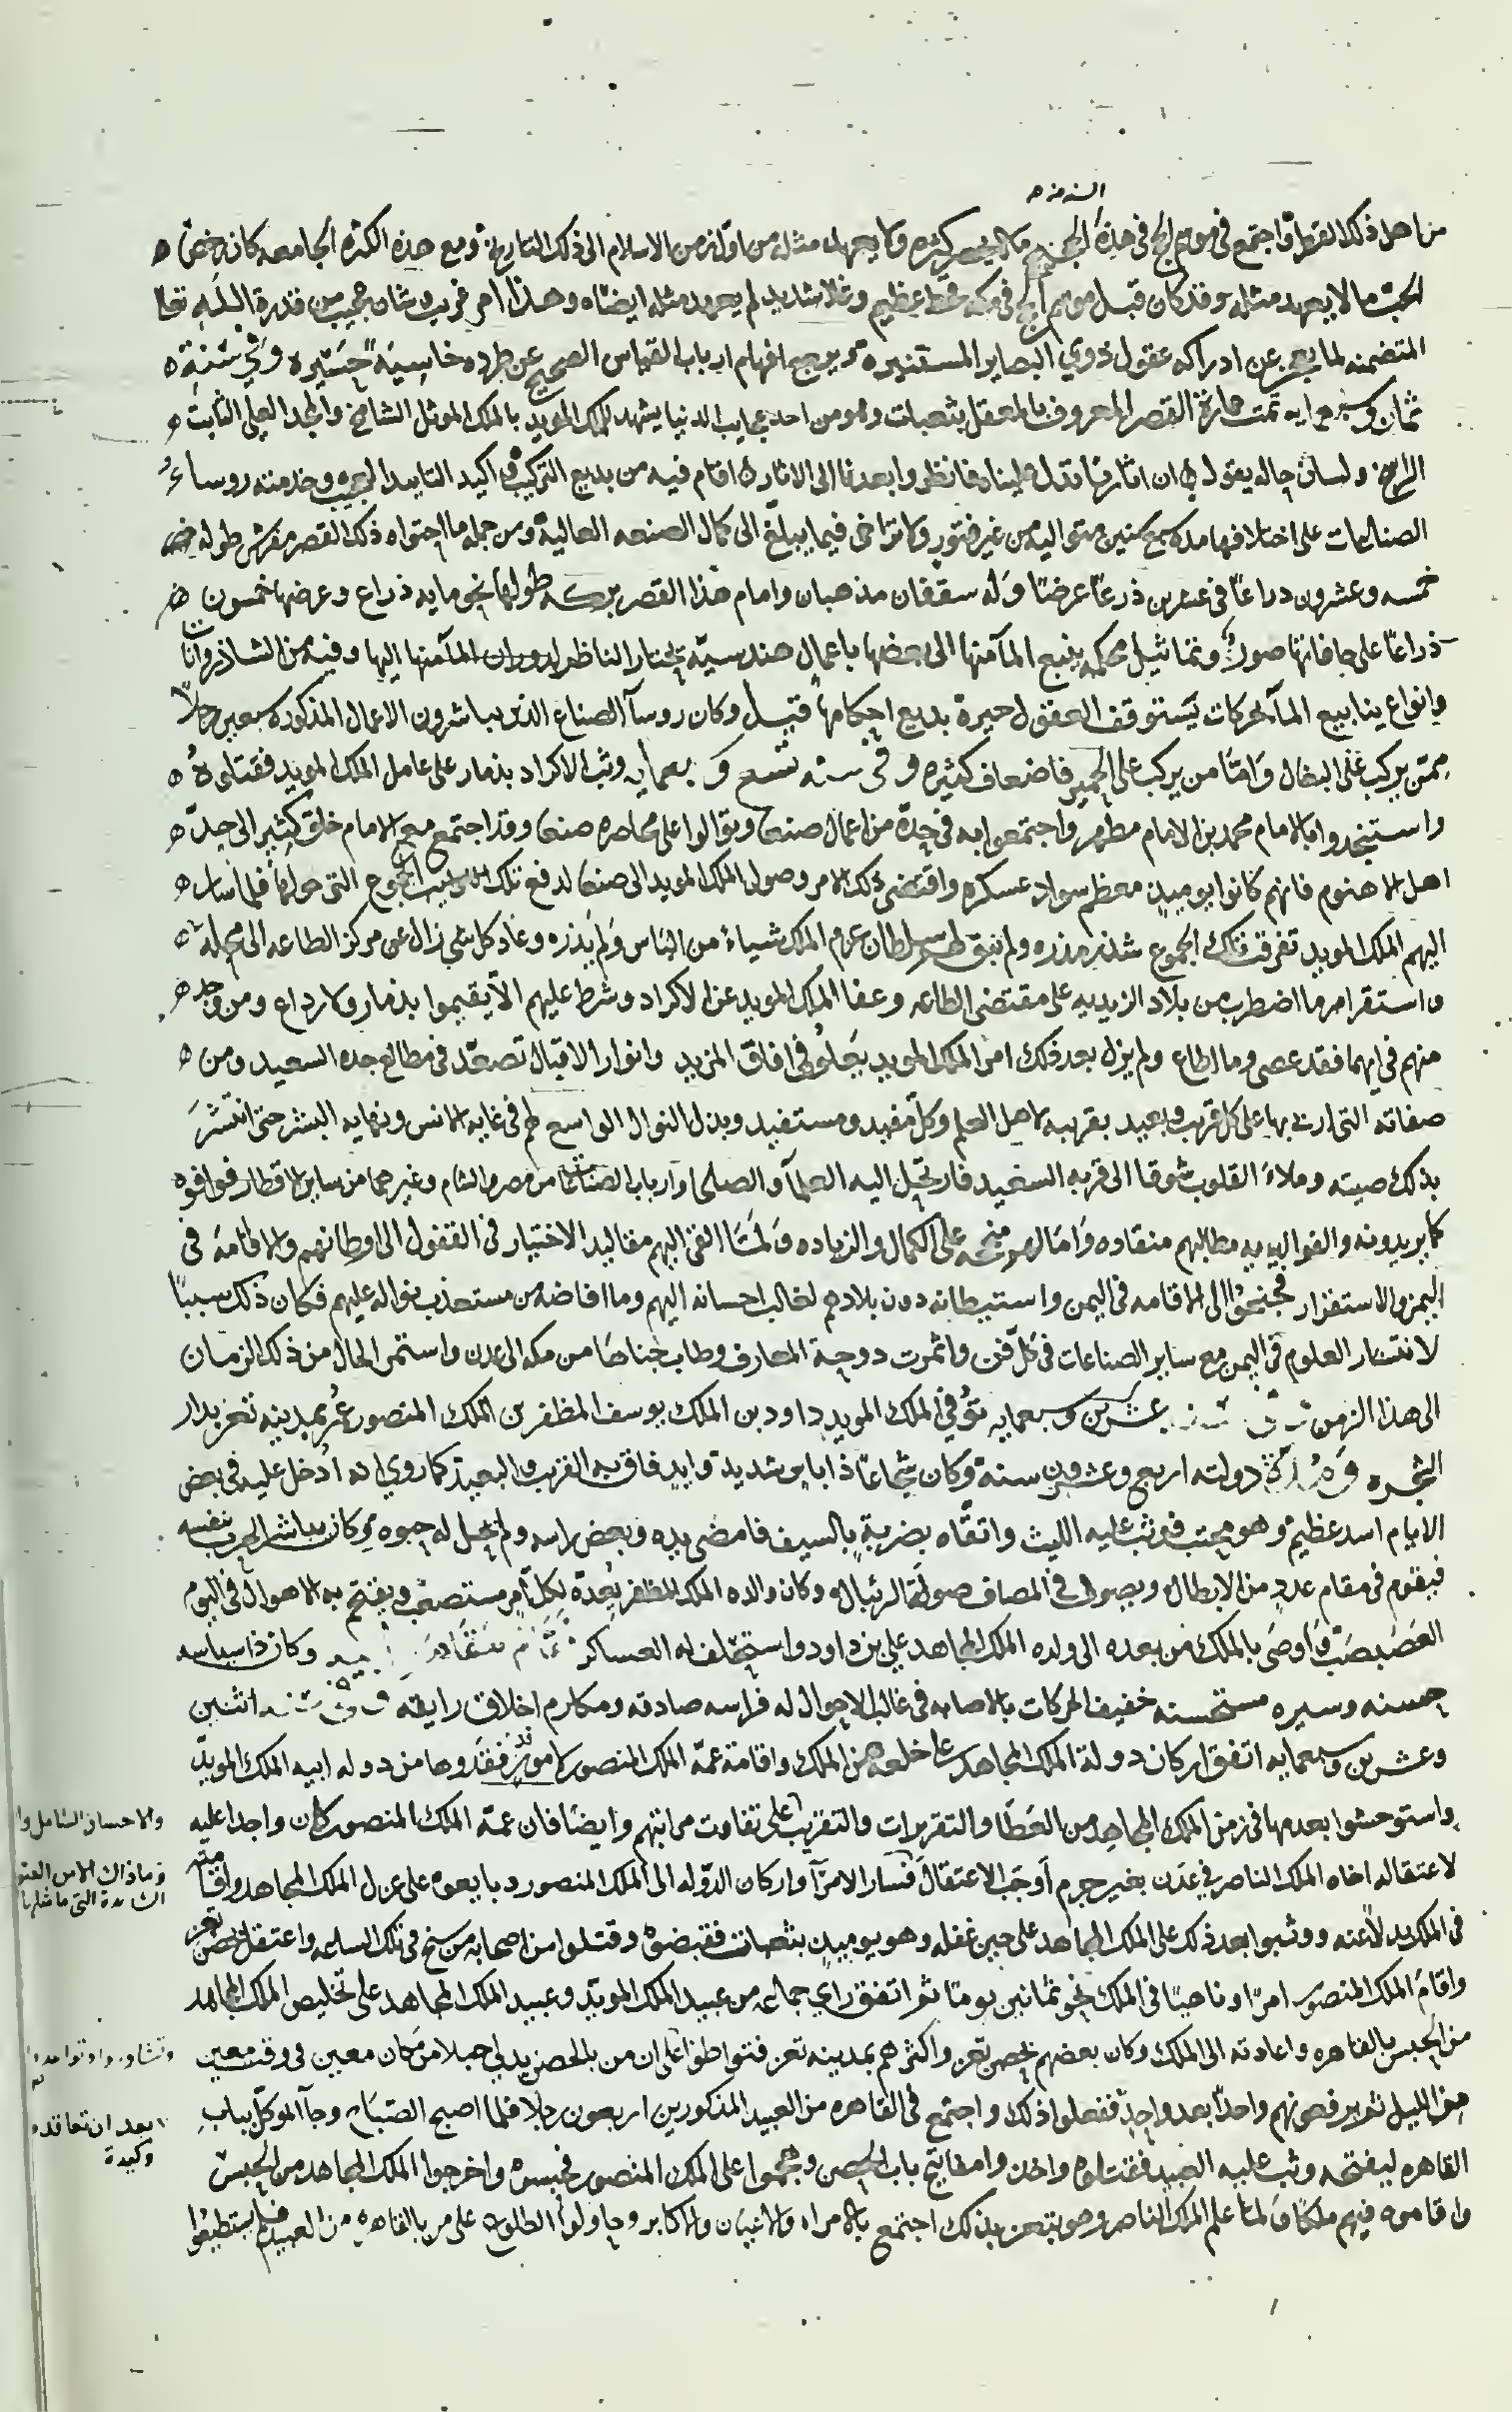 السنه
من اهل ذلك القطر واجتمع في موسم الحج في هذه ما لا يحصر كثره ولا يعهد مثله من اول زمن الاسلام الى ذلك التاريخ ومع هذه الكثره الجامعه كان رخص
الحب ما لا يعهد مثله وقد كان قبل موسم الحج في مكه قحط عظيم وغلا شديد لم يعهد مثله ايضا وهذا امر غريب وشان عجيب من قدرة الله تعا
المتضمنه لما يعجز عن ادراكه عقول ذوي البصاير المستنيره ويرجع افهام ارباب القياس الصحيح عن طرده خاسية حسيره وفي سنة
ثمان وسبعمايه تمت عمارة القصر المعروف بالمعقل بثعبات وهو من احد عجايب الدنيا يشهد للملك المويد بالملك الموثل الشامخ والمجد العلي الثابت
الراسخ ولسان حاله يقول ان اثارنا تدل علينا فانظروا بعدنا الى الاثار اقام فيه من بديع التركيب واكيد التاييد العجيب وخدمته روسا
الصناعات على اختلافها مده سبع سنين متواليه من غير فتور ولا تراخى فيما يبلغ الى كمال الصنعه العاليه ومن جمله ما احتواه ذلك القصر مفرش طوله
خمسه وعشرون ذراعا في عشرين ذرعا عرضا وله سقفان مذهبان وامام هذا القصر بركه طولها نحو مايه ذراع وعرضها خمسون
ذراعا على حافاتها صور وتماثيل محكمه ينبع المآ منها الى بعضها باعمال هندسيه يحتار الناظر لدوران المآ منها اليها وفيه من الشاذروانات
وانواع ينابيع المآ حركات يستوقف العقول حيرة بديع احكامها قيل وكان روسآ الصناع الذين يباشرون الاعمال المذكوره سبعين رجلا
ممن يركب على البغال واما من يركب على الحمير فاضعاف كثيره وفي سنه تسع وسبعمايه وثب الاكراد بذمار على عامل الملك المويد فقتلوه
واستنجدوا بالامام محمد بن الامام مطهر واجتمعوا به في حدة من اعمال صنعا وتوالوا على محاصره صنعا وقد اجتمع مع الامام خلق كثير الى حد
اهل الاهنوم فانهم كانوا يوميد معظم سواد عسكره واقتضى ذلك الامر وصول الملك المويد الى صنعا لدفع تلك الجموع التي حولها فلما سار
اليهم الملك المويد تفرقت تلك الجموع شذر مذر ولم تبق لهم سلطان عزم الملك شياء من الناس ولم يذره وعاد كل شي زال عن مركز الطاعه الى محله
واستقر امر ما اضطرب من بلاد الزيديه على مقتضى الطاعه وعفا الملك المويد عن الاكراد وشرط عليهم الا يقيموا بذمار ولا رداع ومن وجد
منهم في ايهما فقد عصى وما اطاع ولم يزل بعد ذلك امر الملك المويد يعلو في افاق المزيد وانوار الاقبال تصعد في مطالع جده السعيد ومن
صفاته التي اربى بها على كل قريب وبعيد تقريبه لاهل العلم وكل مفيد ومستفيد وبذل النوال الواسع لهم في غايه الانس ونهايه البشر حتى انتشر
بذلك صيته وملاء القلوب شوقا الى قربه السعيد فارتحل اليه العلمآ والصلحا وارباب الصناعات من مصر والشام وغيرهما من ساير الاقطار فوافوه
كما يريدونه والفوا لديه مطالبهم منقاده وامالهم منحه على الكمال والزياده ولما القى اليهم مقاليد الاختيار في القفول الى اوطانهم والاقامة في
اليمن والاستقرار فجنحوا الى الاقامه في اليمن واستيطانه دون بلادهم لغالب احسانه اليهم وما افاضه من مستعذب نواله عليهم فكان ذلك سببا
لانتشار العلوم في اليمن مع ساير الصناعات في كل فن واثمرت دوحة المعارف وطاب جناها من مكه الى عدن واستمر الحال من ذلك الزمان
الى هذا الزمن وفي سنه عشرين وسبعمايه توفي الملك المويد داود بن الملك يوسف المظفر بن الملك المنصور عمر بمدينه تعز بدار
الشجره ومدة دولته اربع وعشرون سنة وكان شجاعا ذا باس شديد وايد فاق به القريب والبعيد كما روي انه ادخل عليه في بعض
الايام اسد عظيم وهو محتب فوثب عليه الليث واتقاه بضربة بالسيف فامضى يده وبعض راسه ولم يحل له حبوه وكان يباشر الحرب بنفسه
فيقوم في مقام عدد من الابطال ويصول في المصاف صولة الرئبال وكان والده الملك المظفر يعده لكل امر مستصعب ويفتح به الاهوال في اليوم
العصبصب واوصى بالملك من بعده الى ولده الملك المجاهد علي بن داود واستحلف له العساكر وكان ذا سياسه
حسنه وسيره مستحسنه خفيف الحركات بالاصابه في غالب الاحوال له فراسه صادقه ومكارم اخلاق رايقه وفي سنه اثنين
وعشرين وسبعمايه اتفق اركان دولة الملك المجاهد على خلعه من الملك واقامة عمه الملك المنصور لامور فقدوها من دوله ابيه الملك المويد
واستوحشوا بعدمها في زمن الملك المجاهد من العطا والتقريرات والتقريب على تفاوت مراتبهم وايضا فان عمه الملك المنصور كان واجدا عليه
لاعتقاله اخاه الملك الناصر في عدن بغير جرم اوجب الاعتقال فسار الامرآ واركان الدوله الى الملك المنصور وبايعوه على عزل الملك المجاهد واقامته
في الملك بدلا عنه ووثبوا بعد ذلك على الملك المجاهد على حين غفله وهو يوميد بثعبات فقبضوه وقتلوا من اصحابه من سنح في تلك الساعه واعتقل بحصن تعز
واقام الملك المنصور امرا وناهيا في الملك نحو ثمانين يوما ثم اتفق راي جماعه من عبيد الملك المويد وعبيد الملك المجاهد على تخليص الملك المجاهد
من الحبس بالقاهره واعادته الى الملك وكان بعضهم بحصن تعز واكثرهم بمدينه تعز فتواطوا على ان من بالحصن يدلي حبلا من مكان معين في وقت معين
من الليل ثم يرفعونهم واحدا بعد واحد ففعلوا ذلك واجتمع في القاهره من العبيد المذكورين اربعون رجلا فلما اصبح الصباح وجآ الموكل بباب
القاهره ليفتحه وثب عليه العبيد فقتلوه واخذوا مفاتيح باب الحصن وهجموا على الملك المنصور فحبسوه واخرجوا الملك المجاهد من الحبس
واقاموه فيهم ملكا ولما علم الملك الناصر وهو بتعز بذلك اجتمع بالامراء والاعيان والاكابر وحاولوا الطلوع على من بالقاهره من العبيد فلم يستطيعوا
والاحسان الشامل
بعد ان تعاقدوا
وكيدة